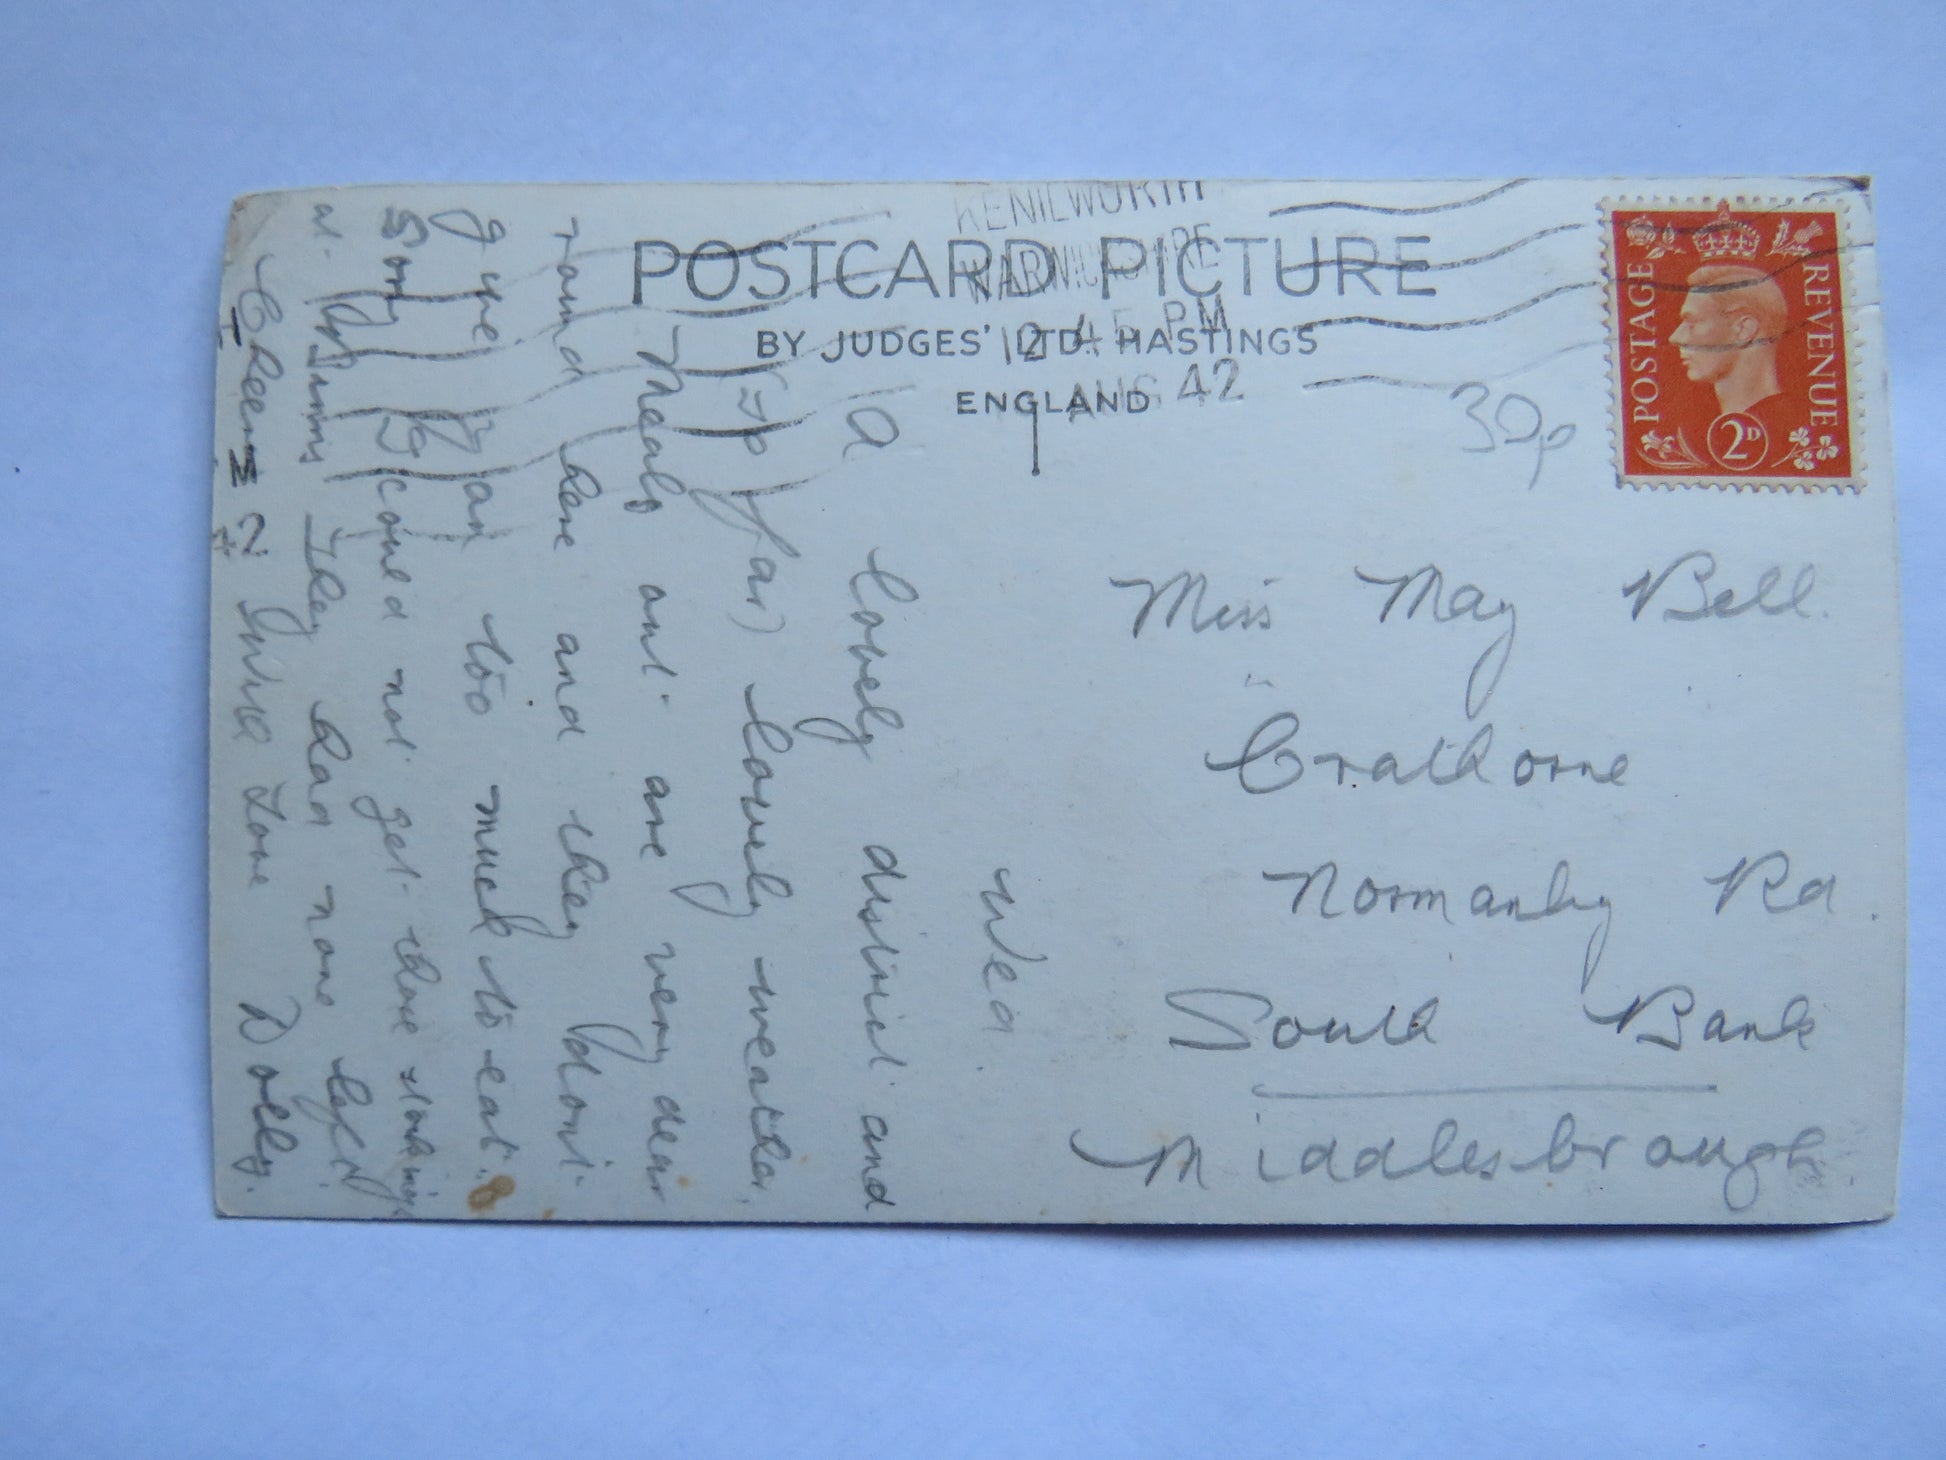 KENILWORTH
WARWICKSHIRE
12 45 PM
AUG 42
POSTCARD PICTURE
BY JUDGES' LTD. HASTINGS
ENGLAND
POSTAGE
REVENUE
2D
30p
Miss May Bell.
Crathorne
Normanby Rd.
South Bank
Middlesbrough.
Wed.
A lovely district and
(so far) lovely weather.
Meals out are very dear
round here and they don't
give you too much to eat.
Sorry I could not get those stockings
at They had none left!
Cheers Love Dolly.